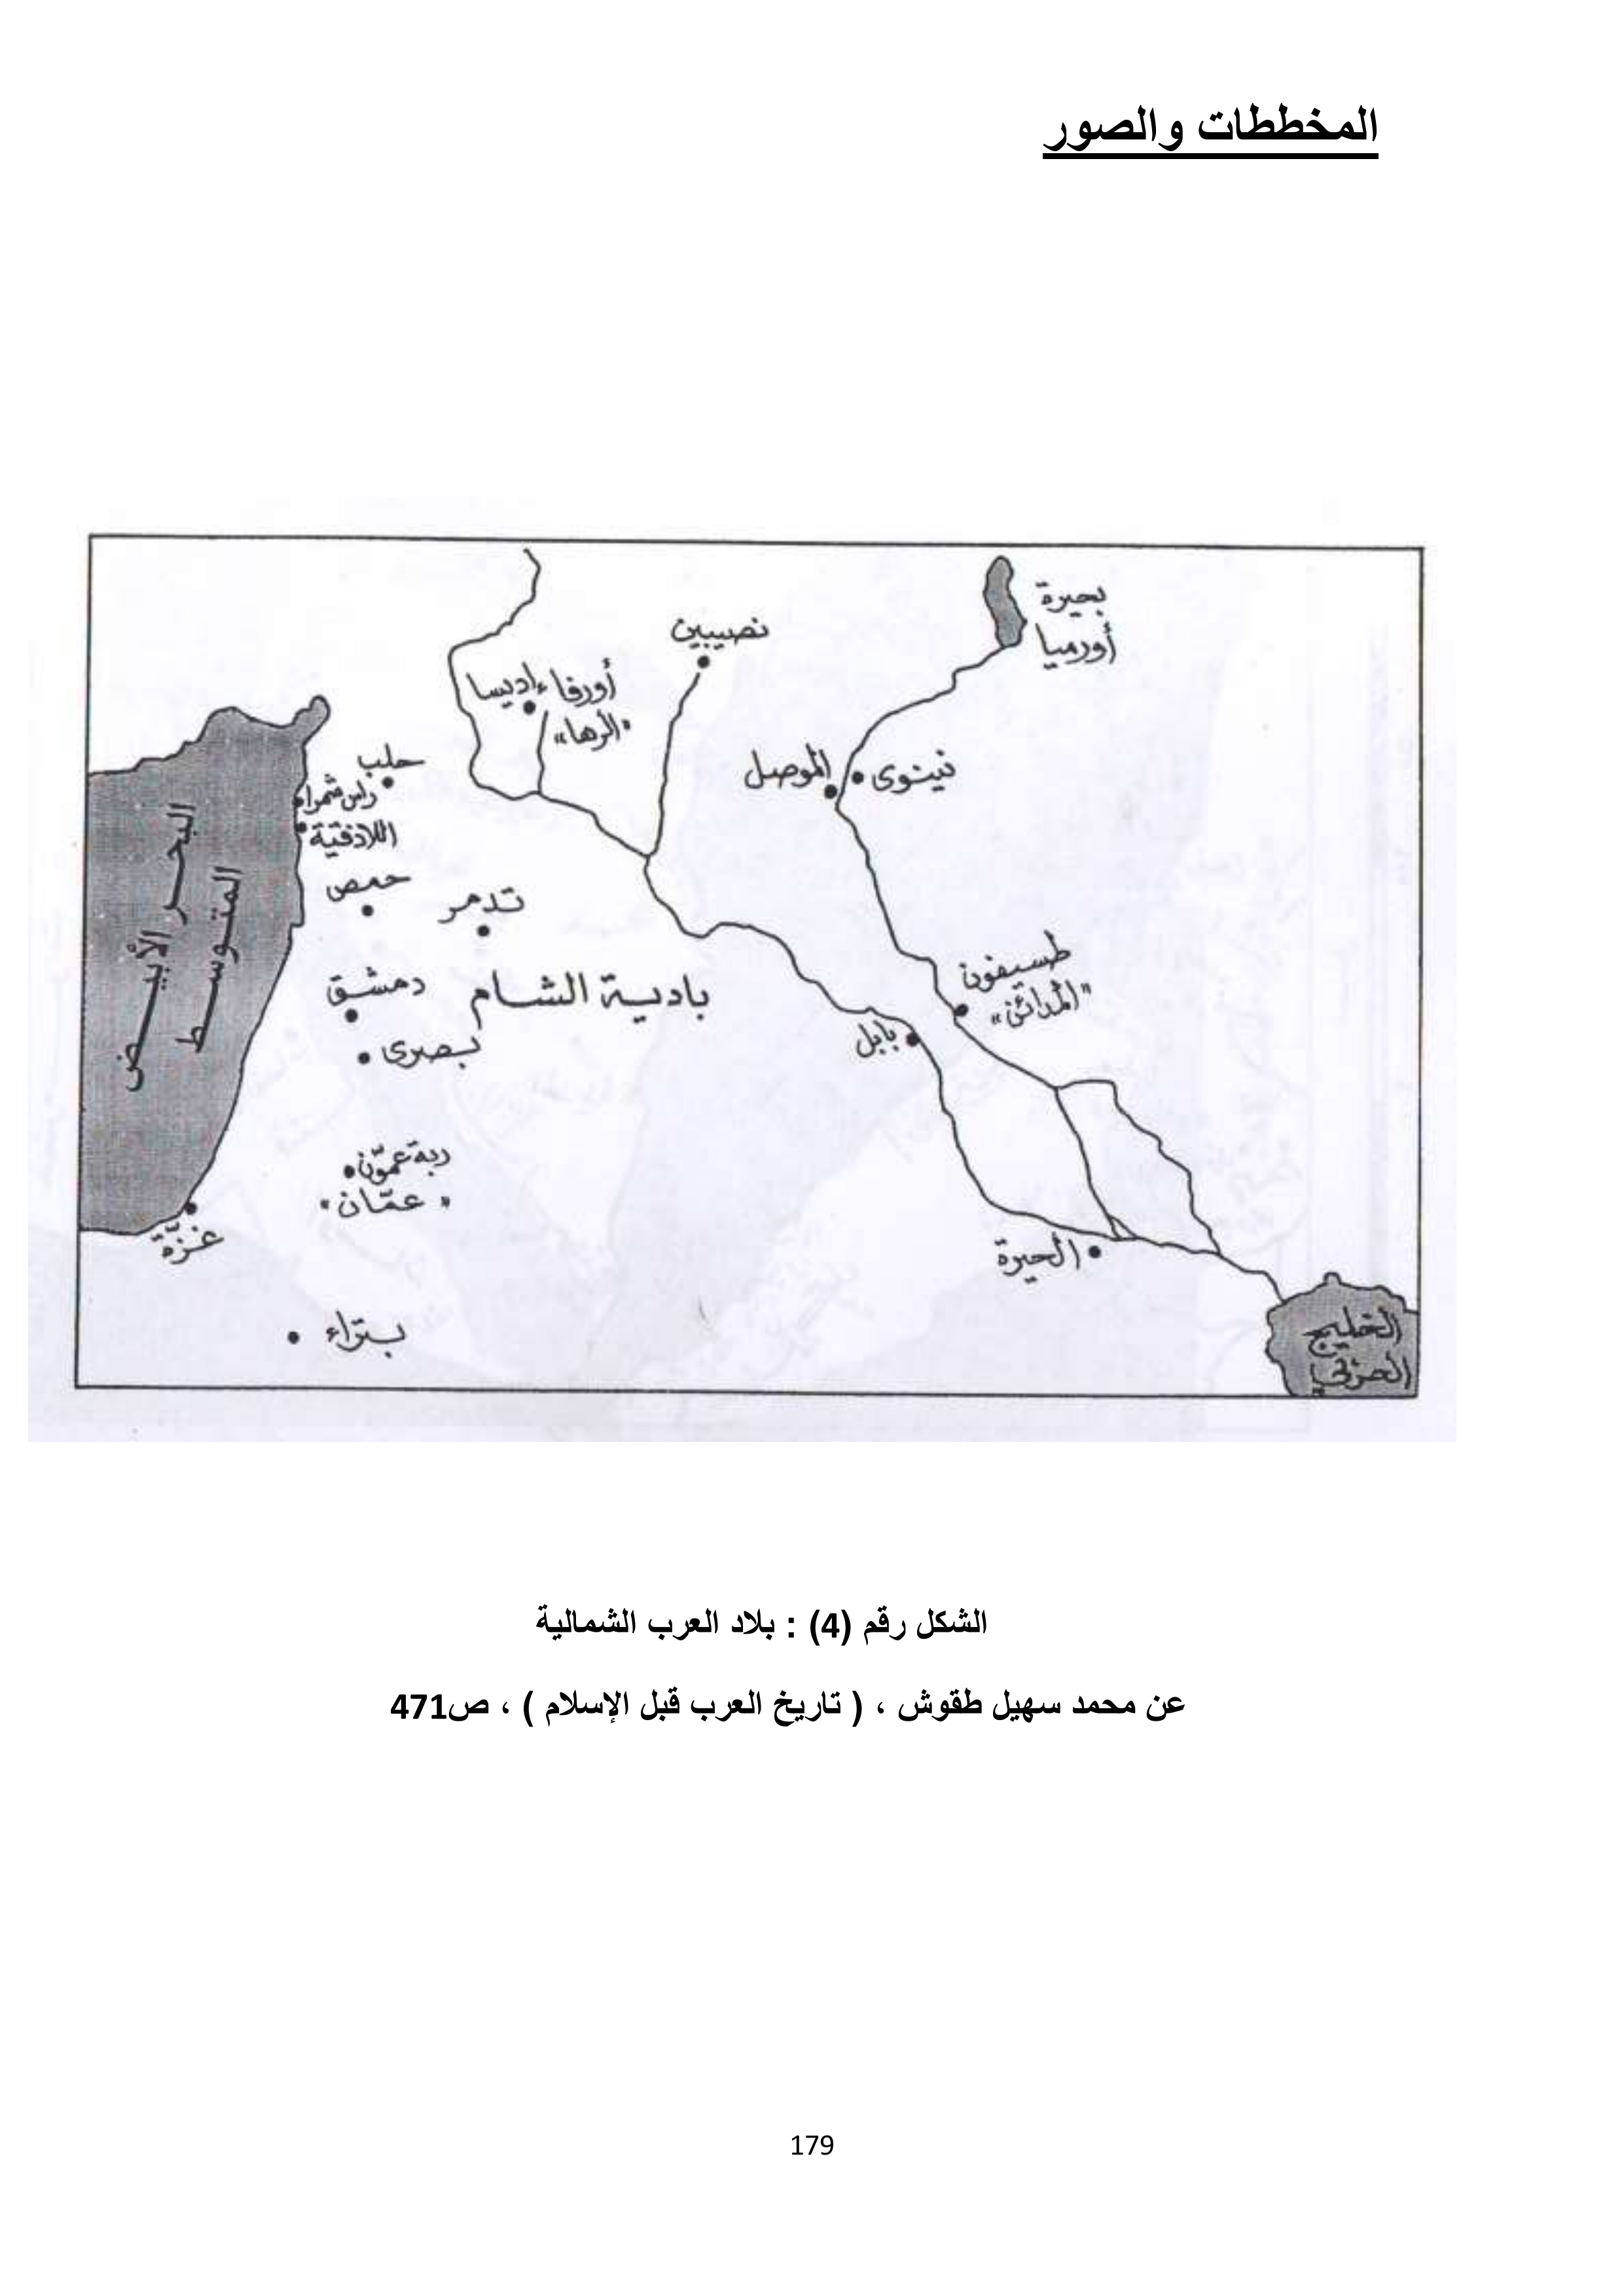 المخططات والصور
بحيرة
أورميا
نصيبين
أورفاء اديسا
"الرها"
نينوى
الموصل
حلب
راس شمرا
اللاذقية
حمص
تدمر
البحر الأبيض
المتوسط
دمشق
بادية الشام
طسيفون
"المدائن"
بابل
بصرى
ربة عمّون
"عمّان"
غزّة
الحيرة
بتراء
الخليج
العربي
الشكل رقم (4) : بلاد العرب الشمالية
عن محمد سهيل طقوش ، ( تاريخ العرب قبل الإسلام ) ، ص471
179